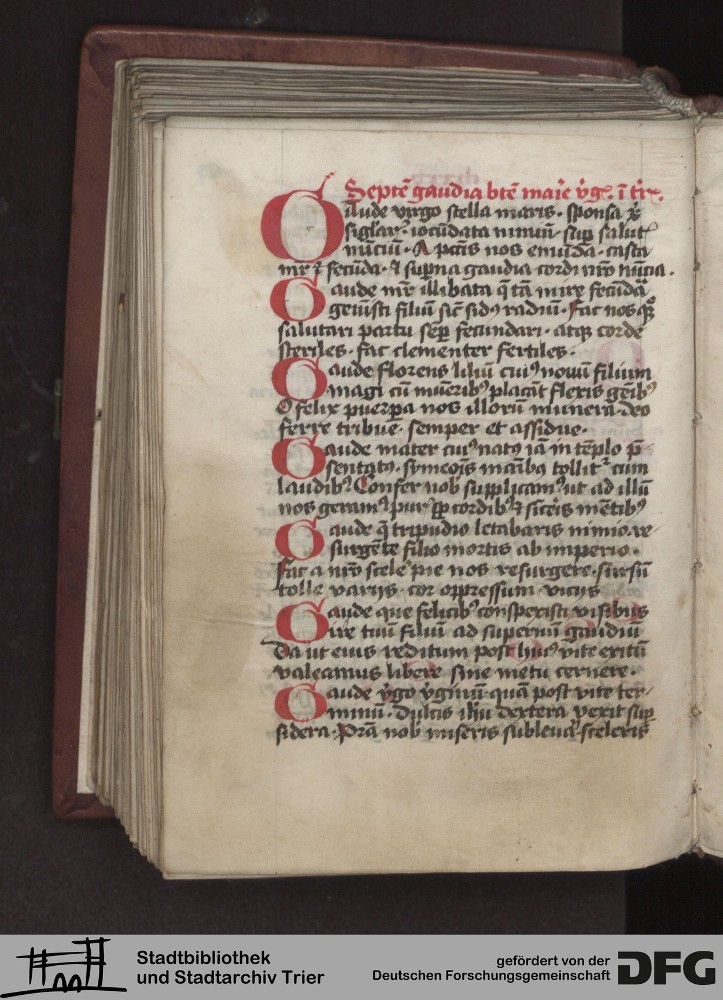 Septē gaudia btē maīe v̄gꝭ. ī tr̄ꝭ.
Gaude virgo stella maris. sponsa xp̄i
siglarꝭ. iocūdata nimiū. sup̄ salutꝭ
nūciū. A pctīs nos emūda. casta
mr̄ ⁊ fecūda. ⁊ sup̄na gaudia cordi nr̄o nūcia.
Gaude mr̄ illibata q̄ tā mire fecūda
genuisti filiū sic̄ sidꝰ radiū. Fac nos
salutari partu sep̄ fecundari. atqꝫ corde
steriles. fac clementer fertiles.
Gaude florens liliū cuiꝰ nouū filium
magi cū mūeribꝰ placāt flexis gēibꝰ
O felix puerp̄a nos illorū munera. deo
ferre tribue. semper et assidue.
Gaude mater cuiꝰ natꝰ iā in tēplo p̄
sentatꝰ. symeōis manibꝰ tollitꝛ cum
laudibꝰ Confer nob̄ supplicamꝰ ut ad illū
nos geramꝰ pur cordibꝰ ⁊ sīceris mētibꝰ
Gaude q̄ tripudio letabaris nimio. re
surgēte filio mortis ab imperio.
Fac a nr̄o scele pie nos resurgere. sursū
tolle varijs cor oppressum vicijs
Gaude que felicibꝰ conspexisti visibus
ire tuū filiū ad supernū gaudiū
Da ut eius reditum post huiꝰ vite exitū
valeamus libere sine metu cernere.
Gaude v̄go v̄ginū quā post vite ter
minū. dulcis ih̄u dextera vexit sup̄
sidera. nob̄ miseris subleua sceleris
Stadtbibliothek
und Stadtarchiv Trier
gefördert von der
Deutschen Forschungsgemeinschaft
DFG